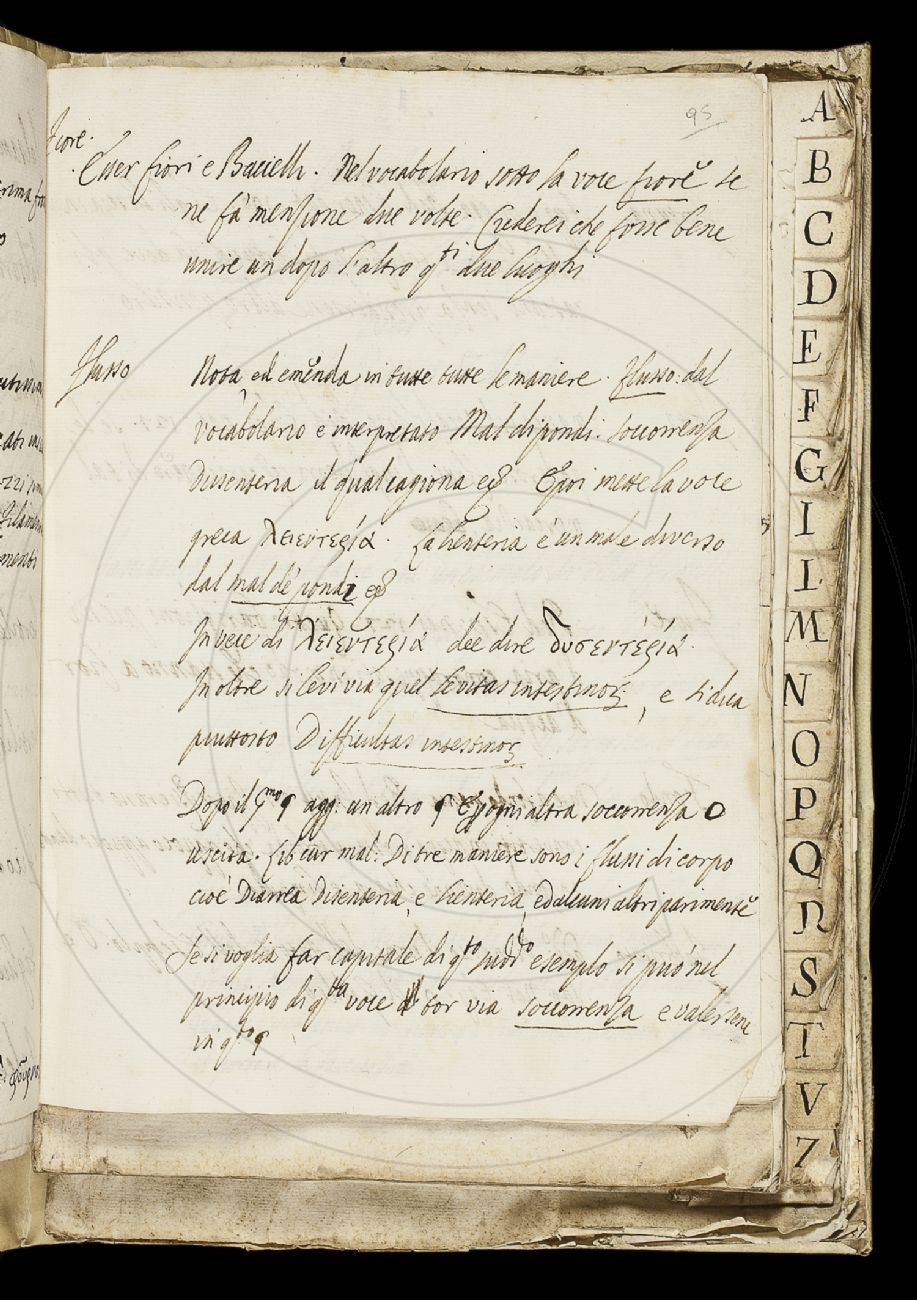 95
Fiore.
Esser fiori e Baccelli. Nel vocabolario sotto la voce fiorẽ se
ne fà menzione due volte. Crederei che fosse bene
unire un dopo l'altro q.ti due luoghi
Flusso
Nota, ed emẽnda in tutte tutte le maniere. flusso: dal
vocabolario è interpretato Mal di pondi. soccorrenza
Dissenteria il qual cagiona
E poi mette la voce
greca λειεντερία. La lienteria è un male diverso
dal mal dé pondi
In vece di λειεντερία dee dire δυσεντερία.
In oltre si levi via quel levitas intestinoꝝ, e si dica
piuttosto Difficultas intestinoꝝ
Dopo il p.mo § agg: un altro § E p ogni altra soccorrenza o
uscita. Lib cur mal: Di tre maniere sono i flussi di corpo
cioè Diarrea Disenteria, e lienteria, ed alcuni altri parimentẽ
Se si voglia far capitale di q.to sudd.o esemplo si può nel
principio di q.ta voce tor via soccorrenza e valersene
in q.to §
A
B
C
D
E
F
G
I
L
M
N
O
P
Q
R
S
T
V
Z